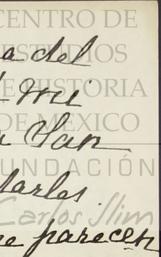 CENTRO DE
a del
ESTUDIOS
mi
DE HISTORIA
San
DE MEXICO
FUNDACIÓN
darles
Carlos Slim
me parecen